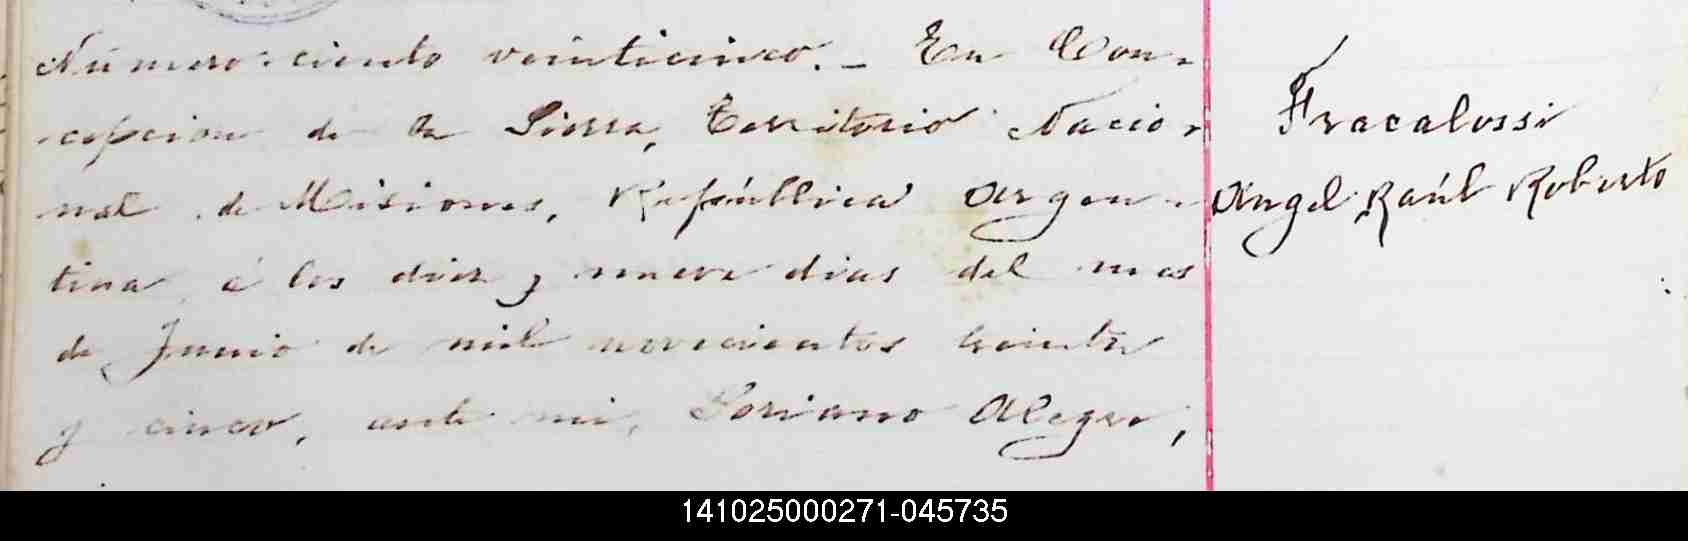 Número ciento veinticinco. _ En Con-
cepcion de la Sierra, Territorio Nacio-
nal de Misiones, República Argen-
tina, á los diez y nueve dias del mes
de Junio de mil novecientos treinta
y cinco, ante mi, Soriano Alegre,
Fracalossi
Angel Raúl Roberto
141025000271-045735